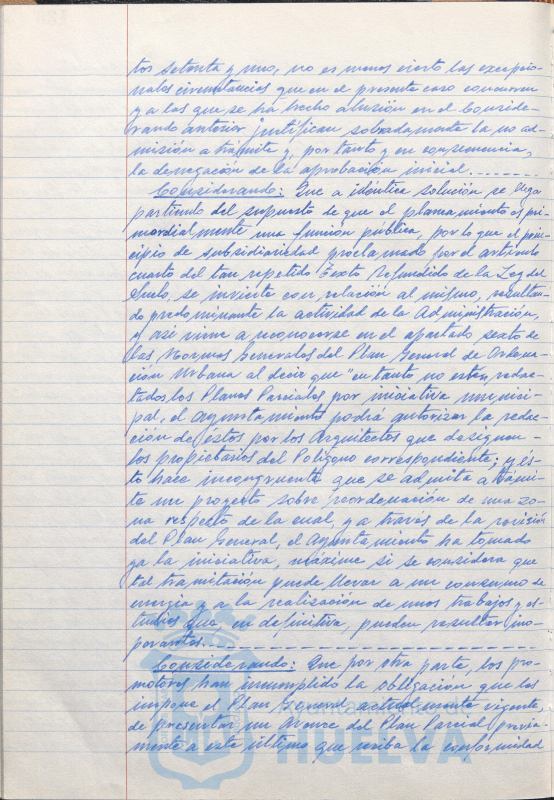 tos setenta y uno, no es menos cierto las excepcio-
nales circunstancias que en el presente caso concurren
y a las que se ha hecho alusión en el Conside-
rando anterior justifican sobradamente la no ad-
misión a trámite y, por tanto y en consecuencia,
la denegación de la aprobación inicial.-------
Considerando: Que a idéntica solución se llega
partiendo del supuesto de que el planeamiento es pri-
mordialmente una función pública, por lo que el prin-
cipio de subsidiariedad proclamado por el artículo
cuarto del tan repetido Texto Refundido de la Ley del
Suelo, se invierte con relación al mismo, resultan-
do predominante la actividad de la Administración,
y así viene a reconocerse en el apartado sexto de
las Normas Generales del Plan General de Ordena-
ción Urbana al decir que "en tanto no estén redac-
tados los Planes Parciales por iniciativa munici-
pal, el Ayuntamiento podrá autorizar la redac-
ción de éstos por los Arquitectos que designen
los propietarios del Polígono correspondiente; y es-
to hace incongruente que se admita a trámi-
te un proyecto sobre reordenación de una zo-
na respecto de la cual, y a través de la revisión
del Plan General, el Ayuntamiento ha tomado
ya la iniciativa, máxime si se considera que
tal tramitación puede llevar a un consumo de
energía y a la realización de unos trabajos y es-
tudios que, en definitiva, pueden resultar ino-
perantes.---------------
Considerando: Que por otra parte, los pro-
motores han incumplido la obligación que les
impone el Plan General actualmente vigente,
de presentar un Avance del Plan Parcial previa-
mente a este último que reciba la conformidad
HUELVA